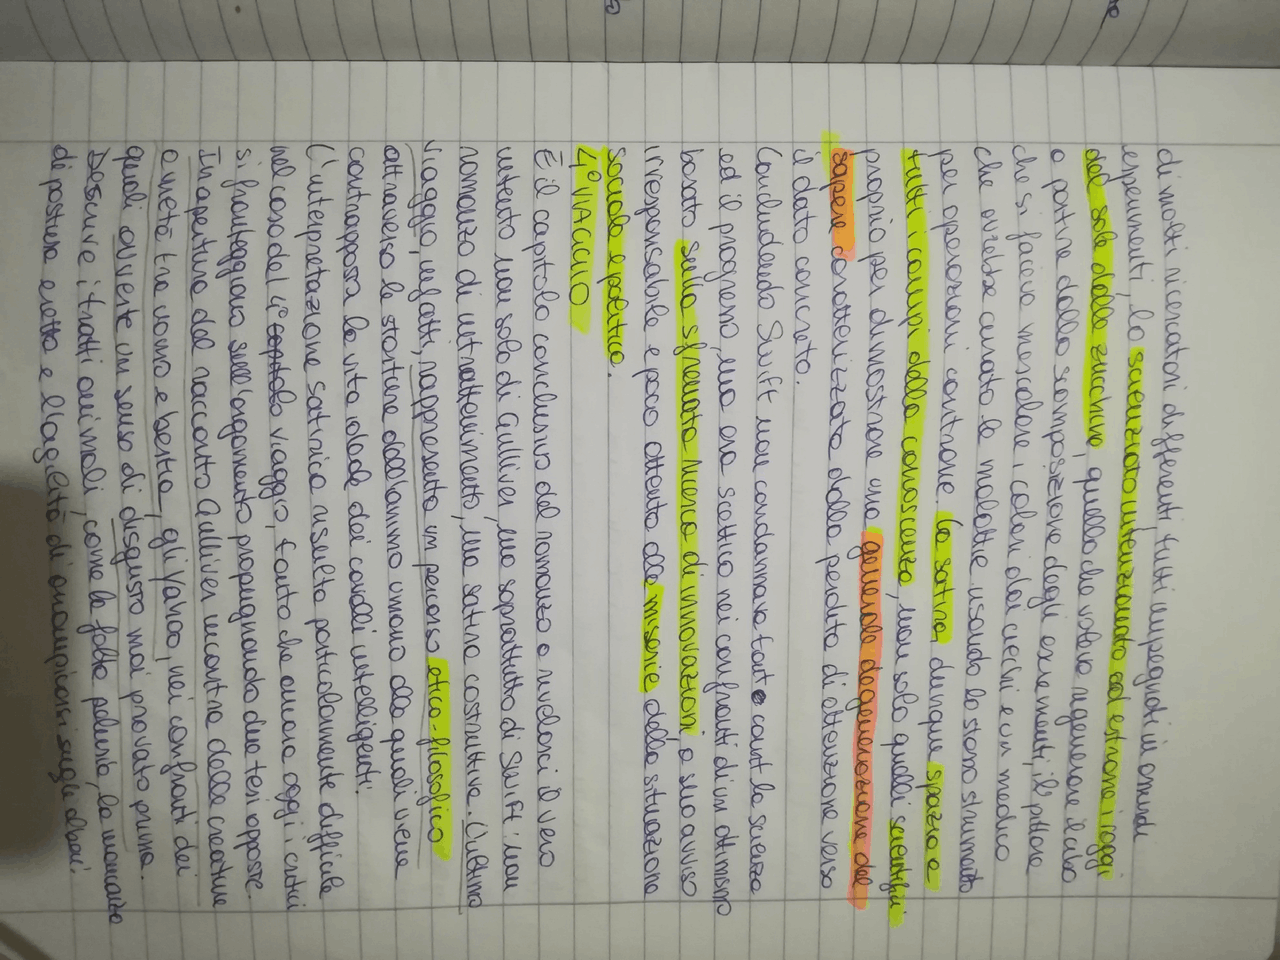 di molti ricercatori differenti tutti impegnati in assurdi
esperimenti, lo scienziato intenzionato ad estrarre i raggi
del sole dalle zucchine, quello che voleva rigenerare il cibo
a partire dalla scomposizione degli escrementi, il pittore
che si faceva mescolare i colori dai ciechi e un medico
che avrebbe curato le malattie usando lo stesso strumento
per operazioni contrarie. La satira, dunque spazia a
tutti i campi della conoscenza, non solo quelli scientifici
proprio per dimostrare una generale degenerazione del
sapere caratterizzata dalla perdita di attenzione verso
il dato concreto.
Concludendo Swift non condannava tout court la scienza
ed il progresso, ma era scettico nei confronti di un ottimismo
basato sulla sfrenata ricerca di innovazioni a suo avviso
irresponsabile e poco attento alle miserie della situazione
sociale e politica.
4° VIAGGIO
È il capitolo conclusivo del romanzo a rivelarci il vero
intento non solo di Gulliver, ma soprattutto di Swift: non
romanzo di intrattenimento, ma satira costruttiva. L'ultimo
viaggio, infatti, rappresenta un percorso etico-filosofico
attraverso le storture dell'animo umano alle quali viene
contrapposta la vita ideale dei cavalli intelligenti.
L'interpretazione satirica risulta particolarmente difficile
nel caso del 4° capitolo viaggio, tanto che ancora oggi i critici
si fronteggiano sull'argomento propugnando due tesi opposte.
In apertura del racconto Gulliver incontra delle creature
a metà tra uomo e bestia, gli Yahoo, nei confronti dei
quali avverte un senso di disgusto mai provato prima.
Descrive i tratti animali, come la folta peluria, la mancanza
di postura eretta e l'agilità di arrampicarsi sugli alberi